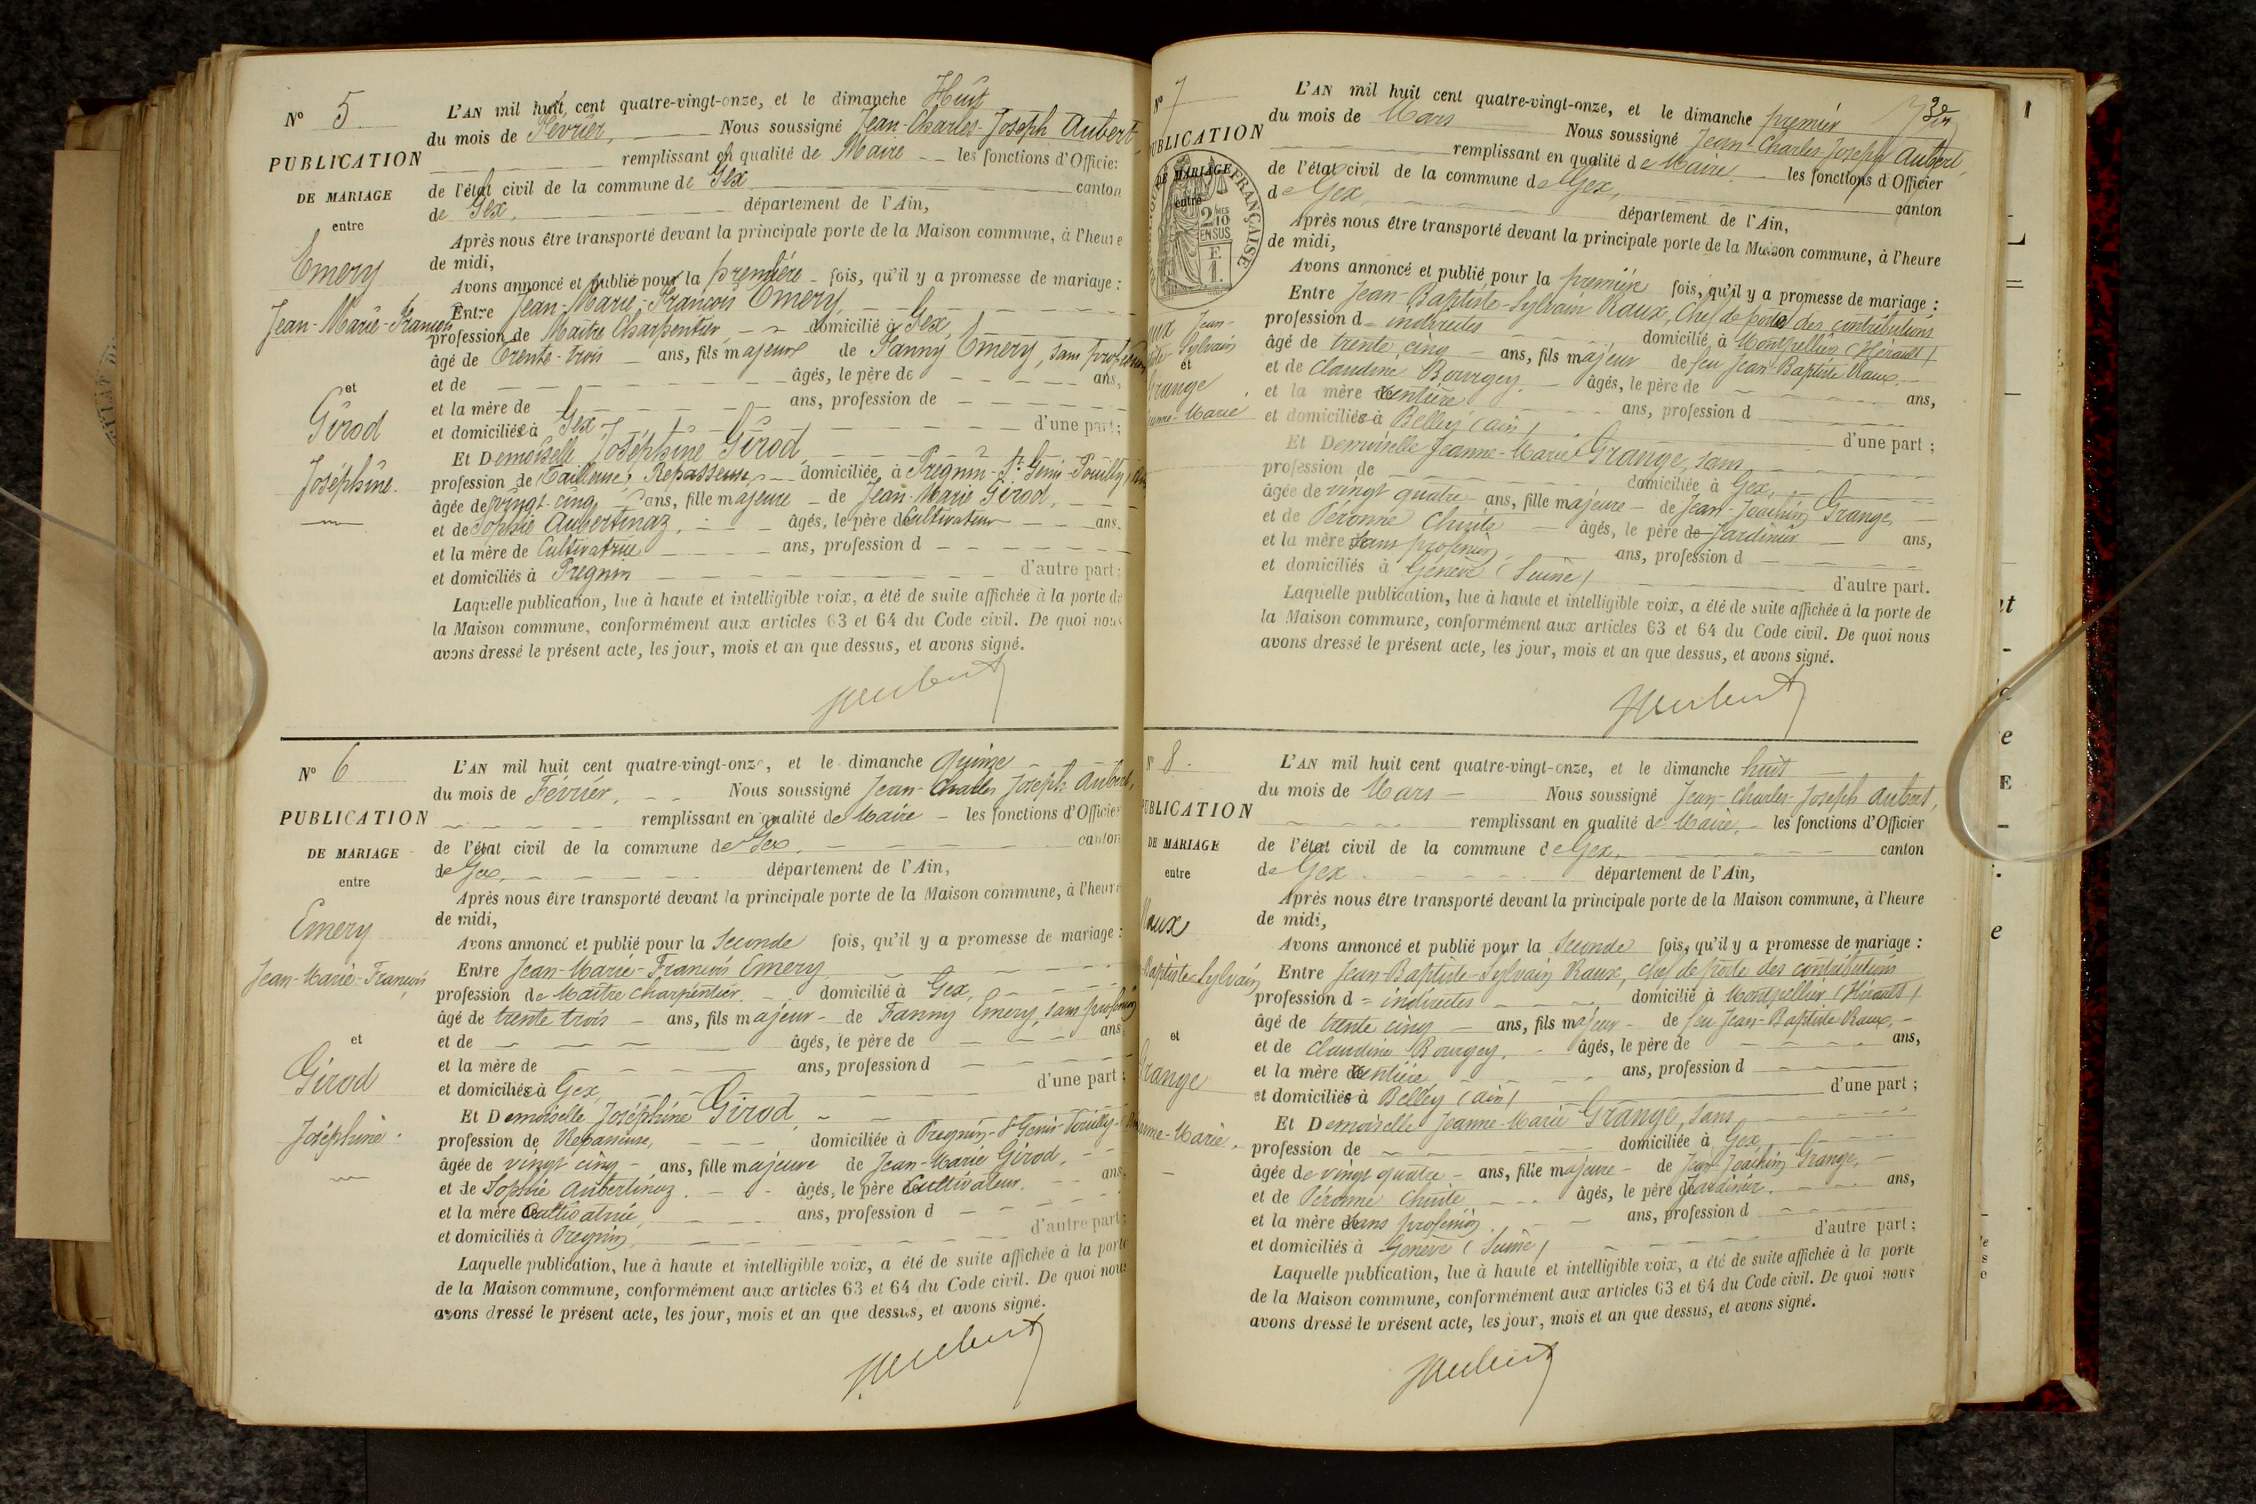 N° 5
PUBLICATION
DE MARIAGE
entre
Emery
Jean-Marie-François
et
Girod
Joséphine.
L'AN mil huit cent quatre-vingt-onze, et le dimanche Huit
du mois de Février, Nous soussigné Jean-Charles-Joseph Aubert
remplissant en qualité de Maire les fonctions d'Officier
de l'état civil de la commune de Gex canton
de Gex, département de l'Ain,
Après nous être transporté devant la principale porte de la Maison commune, à l'heure
de midi,
Avons annoncé et publié pour la première fois, qu'il y a promesse de mariage :
Entre Jean-Marie-François Emery,
profession de Maitre Charpentier domicilié à Gex
âgé de Trente-trois ans, fils majeur de Fanny Emery, sans profession
et de âgés, le père de ans,
et la mère de ans, profession de
et domiciliée à Gex d'une part;
Et Demoiselle Joséphine Girod
profession de Tailleuse, Repasseuse, domiciliée à Pregnin-St Genis-Pouilly
âgée de vingt-cinq ans, fille majeure de Jean-Marie Girod,
et de Sophie Aubertinaz, âgés, le père de Cultivateur ans,
et la mère de Cultivatrice ans, profession d
et domiciliés à Pregnin d'autre part;
Laquelle publication, lue à haute et intelligible voix, a été de suite affichée à la porte de
la Maison commune, conformément aux articles 63 et 64 du Code civil. De quoi nous
avons dressé le présent acte, les jour, mois et an que dessus, et avons signé.
JAubert
N° 6
PUBLICATION
DE MARIAGE
entre
Emery
Jean-Marie-François
et
Girod
Joséphine.
L'AN mil huit cent quatre-vingt-onze, et le dimanche Quinze
du mois de Février, Nous soussigné Jean-Charles Joseph Aubert,
remplissant en qualité de Maire les fonctions d'Officier
de l'état civil de la commune de Gex, canton
de Gex, département de l'Ain,
Après nous être transporté devant la principale porte de la Maison commune, à l'heure
de midi,
Avons annoncé et publié pour la Seconde fois, qu'il y a promesse de mariage :
Entre Jean-Marie-François Emery
profession de Maitre charpentier domicilié à Gex,
âgé de trente trois ans, fils majeur de Fanny Emery, sans profession
et de âgés, le père de ans
et la mère de ans, profession d
et domiciliée à Gex, d'une part;
Et Demoiselle Joséphine Girod,
profession de Repasseuse, domiciliée à Pregnin-St Genis-Pouilly
âgée de vingt cinq ans, fille majeure de Jean-Marie Girod,
et de Sophie Aubertinaz. âgés, le père Cultivateur. ans,
et la mère Cultivatrice, ans, profession d
et domiciliés à Pregnin, d'autre part;
Laquelle publication, lue à haute et intelligible voix, a été de suite affichée à la porte
de la Maison commune, conformément aux articles 63 et 64 du Code civil. De quoi nous
avons dressé le présent acte, les jour, mois et an que dessus, et avons signé.
JAubert
N° 7
PUBLICATION
DE MARIAGE
entre
FRANÇAISE
2 MES
10
EN SUS
F
1
Jean-
Sylvain
et
Grange
Marie
L'AN mil huit cent quatre-vingt-onze, et le dimanche premier
du mois de Mars Nous soussigné Jean-Charles-Joseph Aubert,
remplissant en qualité de Maire les fonctions d'Officier
de l'état civil de la commune de Gex, canton
de Gex, département de l'Ain,
Après nous être transporté devant la principale porte de la Maison commune, à l'heure
de midi,
Avons annoncé et publié pour la première fois, qu'il y a promesse de mariage :
Entre Jean-Baptiste-Sylvain Raux, Chef de poste des contributions
profession d = indirectes domicilié à Montpellier (Hérault)
âgé de trente cinq ans, fils majeur de feu Jean-Baptiste Raux.
et de Claudine Bourgey. âgés, le père de ans,
et la mère rentière ans, profession d
et domiciliée à Belley (ain) d'une part;
Et Demoiselle Jeanne-Marie Grange, sans
profession de domiciliée à Gex,
âgée de vingt quatre ans, fille majeure de Jean-Joachim Grange,
et de Péronne Chuite âgés, le père de Jardinier ans,
et la mère sans profession, ans, profession d
et domiciliés à Genève (Suisse) d'autre part.
Laquelle publication, lue à haute et intelligible voix, a été de suite affichée à la porte de
la Maison commune, conformément aux articles 63 et 64 du Code civil. De quoi nous
avons dressé le présent acte, les jour, mois et an que dessus, et avons signé.
JAubert
N° 8.
PUBLICATION
DE MARIAGE
entre
Raux
Baptiste-Sylvain
et
Grange
Jeanne-Marie.
L'AN mil huit cent quatre-vingt-onze, et le dimanche huit
du mois de Mars Nous soussigné Jean-Charles-Joseph Aubert,
remplissant en qualité de Maire, les fonctions d'Officier
de l'état civil de la commune de Gex, canton
de Gex. département de l'Ain,
Après nous être transporté devant la principale porte de la Maison commune, à l'heure
de midi,
Avons annoncé et publié pour la Seconde fois, qu'il y a promesse de mariage :
Entre Jean-Baptiste-Sylvain Raux, chef de poste des contributions
profession d = indirectes domicilié à Montpellier (Hérault)
âgé de trente cinq ans, fils majeur de feu Jean-Baptiste Raux,
et de Claudine Bourgey. âgés, le père de ans,
et la mère rentière ans, profession d
et domiciliée à Belley (ain) d'une part;
Et Demoiselle Jeanne-Marie Grange, sans
profession de domiciliée à Gex,
âgée de vingt quatre ans, fille majeure de Jean-Joachim Grange,
et de Péronne Chuite âgés, le père Jardinier. ans,
et la mère sans profession. ans, profession d
et domiciliés à Genève (Suisse) d'autre part;
Laquelle publication, lue à haute et intelligible voix, a été de suite affichée à la porte
de la Maison commune, conformément aux articles 63 et 64 du Code civil. De quoi nous
avons dressé le présent acte, les jour, mois et an que dessus, et avons signé.
JAubert